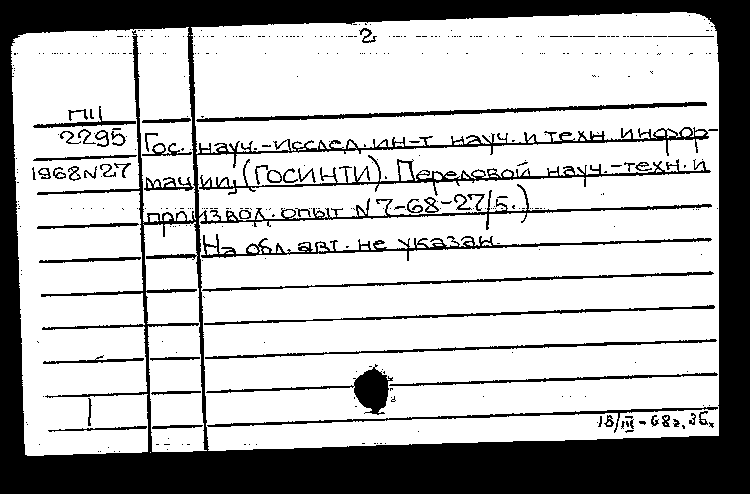 2
ПШ
2295 Гос. науч.-исслед. ин-т науч. и техн. инфор-
1968 N27 мации, (ГОСИНТИ). Передовой науч.-техн. и
производ. опыт N 7-68-27/5.)
На обл. авт. не указан.
18/III-68г.